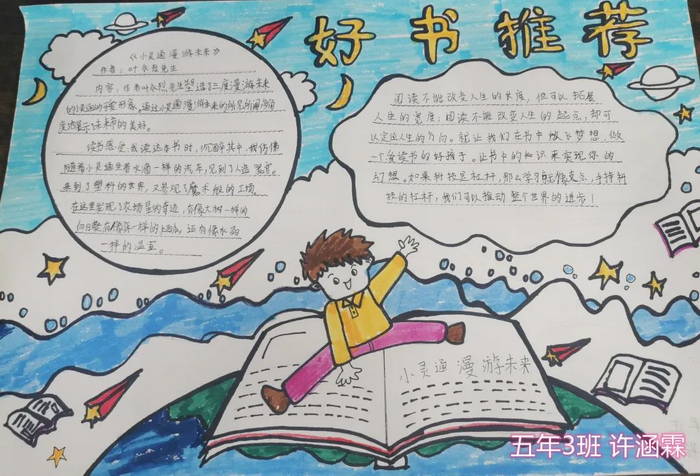 好书推荐
《小灵通漫游未来》
作者：叶永烈先生
内容：作者叶永烈先生塑造了三度漫游未来
的小灵通的可爱形象，通过小灵通漫游未来的所见所闻
展示了未来的美好。
读书感受：我读这本书时，沉醉其中，我仿佛
随着小灵通坐着水滴一样的汽车，见到了人造
来到了塑料的世界，又参观了魔术般的工场。
在这里实现了农场里的奇迹，有像大树一样的
向日葵
一样的
阅读不能改变人生的长度，但可以拓展
人生的宽度；阅读不能改变人生的起点，却可
以定位人生的方向。就让我们在书中放飞梦想，做
一个爱读书的好孩子。让书中的知识来实现你的
幻想。如果科技是杠杆，那么学习就像支点，手持科
技的杠杆，我们可以推动整个世界的进步！
小灵通漫游未来
五年3班 许涵霖